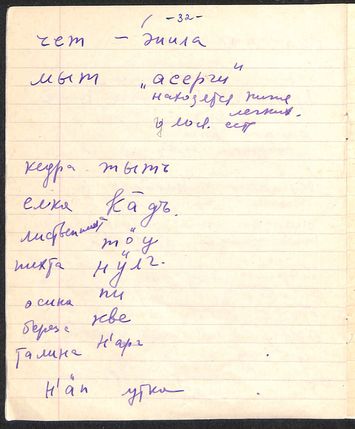 -32-
чет - жила
мыт "асерги"
находятся ниже
легких.
у лося. ест
кедра тыть
елка Кадъ.
лиственница тöу
пихта нӱлг.
осина пи
береза кве
талина н'арг
н'äп утка